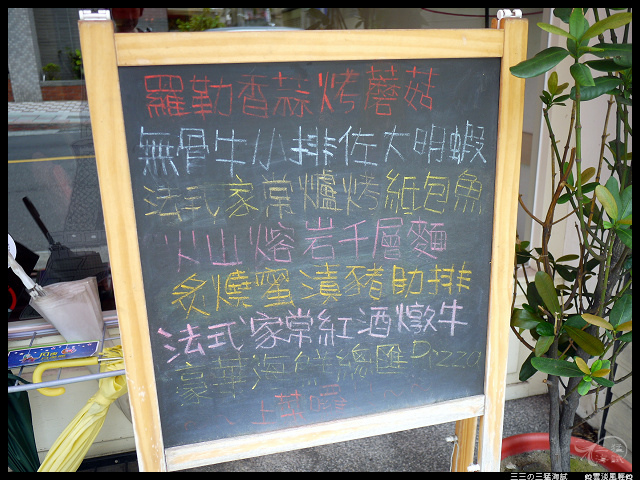 羅勒香蒜烤蘑菇
無骨牛小排佐大明蝦
法式家常爐烤紙包魚
火山熔岩千層麵
炙燒蜜漬豬肋排
法式家常紅酒燉牛
豪華海鮮總匯Pizza
上菜囉
三三の三猛海賊